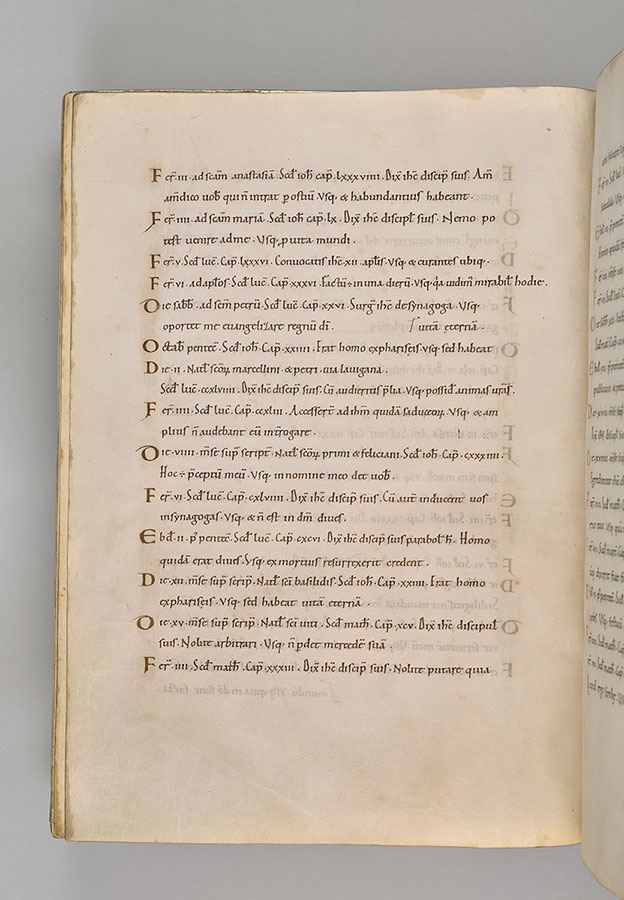 Fer̅. iii. ad scam̅ anastasiā. Scd̅ ioh̅. cap̅. lxxxviiii. Dix̅ ihc̅ discip̅ suis. Am̅
am̅ dico uob̅ qui n̅ intrat p ostiū. Vsq; & habundantius habeant.
Fer̅. iiii. ad scam̅ mariā. Scd̅ ioh̅. cap̅. lx. Dix̅ ihc̅ discipl̅ suis. Nemo po
test uenire ad me. Vsq; p uita mundi.
Fer̅. v. Scd̅ luc̅. Cap̅. lxxxvi. Conuocatis ihc̅ xii. apl̅is. Vsq; & curantes ubiq;.
Fer̅. vi. ad aplōs. Scd̅ luc̅. Cap̅. xxxvi. Factū ÷ in una dierū. Vsq; q̇a uidim̅ mirabil̅ hodie.
Die sabb̅. ad scm̅ petrū. Scd̅ luc̅. Cap̅. xxvi. Surg̅ ihc̅ de synagoga. Vsq;
oportet me euangelizare regnū di̅. uitā eternā.
Octab̅ pentec̅. Scd̅ ioh̅. Cap̅. xxiiii. Erat homo ex phariseis. Vsq; sed habeat
Die. ii. Nat̅l scōr̅ marcellini & petri. uia lauigana.
Scd̅ luc̅. ccxlviii. Dix̅ ihc̅ discip̅ suis. Cū audieritis p̅lia. Vsq; possid̅ animas ur̅as.
Fer̅. iiii. Scd̅ luc̅. Cap̅. ccxliii. Accesser̅ ad ihm̅ quidā saduceor̅. Vsq; & am
plius n̅ audebant eū int̅rogare.
Die. viiii. m̅se sup̅ script̅. Nat̅l scōr̅ primi & feliciani. Scd̅ ioh̅. Cap̅. cxxxiiii.
Hoc ÷ p̅ceptū meū. Vsq; in nomine meo det uob̅.
Fer̅. vi. Scd̅ luc̅. Cap̅. cxlviii. Dix̅ ihc̅ discip̅ suis. Cū aut̅ inducent uos
in synagogas. Vsq; & n̅ est in dm̅ diues.
Ebd̅. ii. p̅ pentec̅. Scd̅ luc̅. Cap̅. cxcvi. Dix̅ ihc̅ discip̅ suis parabol̅ h̅. Homo
quidā erat diues. Vsq; ex mortuis resurrexerit credent.
Die. xii. m̅se sup̅ scrip̅. Nat̅l scī basilidis. Scd̅ ioh̅. Cap̅. xxiiii. Erat homo
ex phariseis. Vsq; sed habeat uitā eternā.
Die. xv. m̅se sup̅ scrip̅. Nat̅l scī uiti. Scd̅ math̅. Cap̅. xcv. Dix̅ ihc̅ discipul̅
suis. Nolite arbitrari. Vsq; n̅ p̱det mercedē suā.
Fer̅. iiii. Scd̅ math̅. Cap̅. xxxiii. Dix̅ ihc̅ discip̅ suis. Nolite putare quia